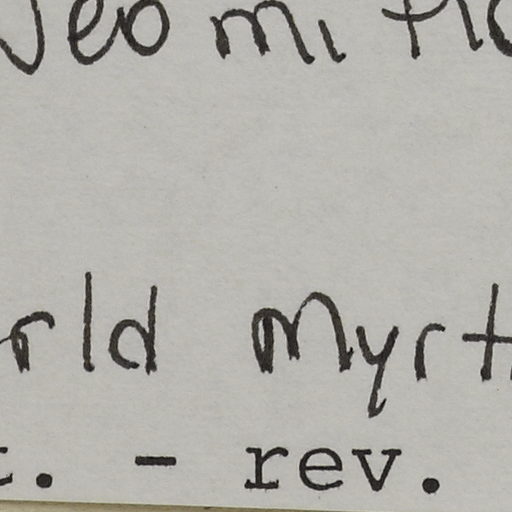 Neomitra
rld Myrt
t. - rev.